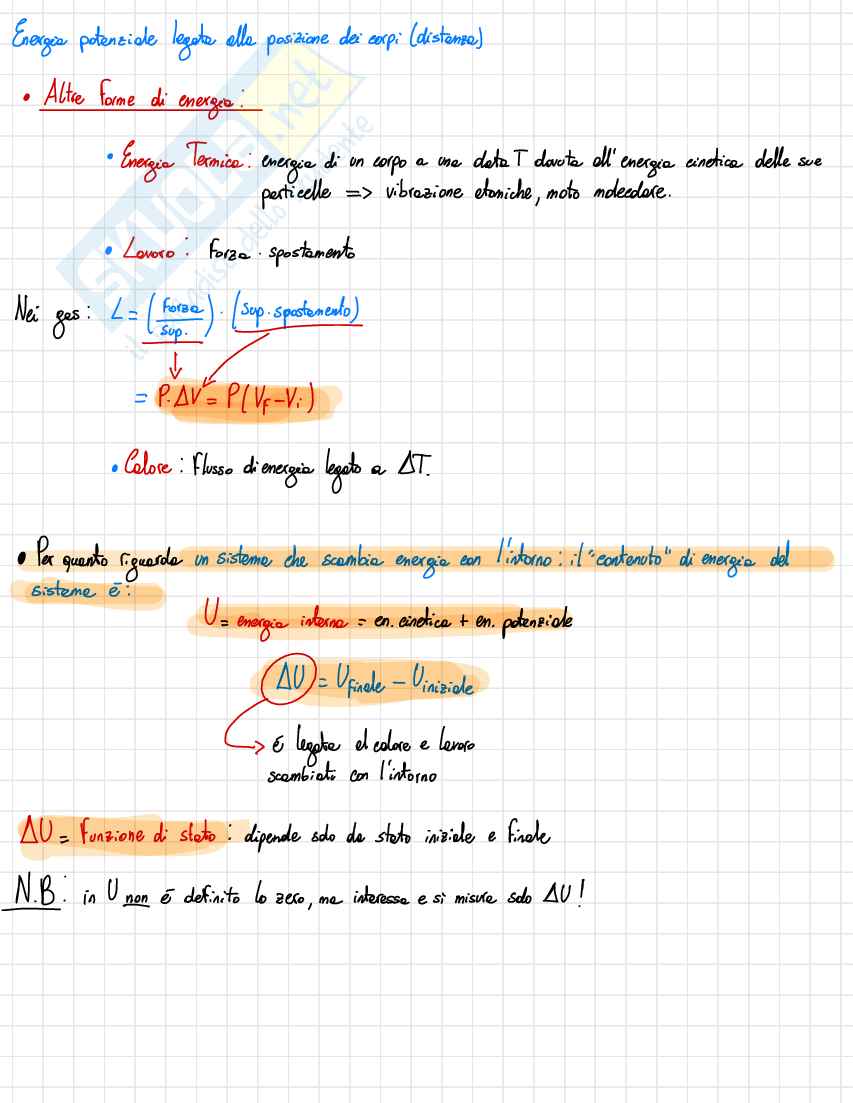 Energia potenziale legata alla posizione dei corpi (distanza)
• Altre forme di energia:
• Energia Termica: energia di un corpo a una data T dovuta all'energia cinetica delle sue
particelle => vibrazione atomiche, moto molecolare.
• Lavoro: Forza · spostamento
Nei gas: L = (Forza/Sup.) · (Sup. spostamento)
= P·ΔV = P(V_F - V_i)
• Calore: Flusso di energia legato a ΔT.
• Per quanto riguarda un sistema che scambia energia con l'intorno: il "contenuto" di energia del
sistema è:
U = energia interna = en. cinetica + en. potenziale
ΔU = U finale - U iniziale
→ è legata al calore e lavoro
scambiati con l'intorno
ΔU = Funzione di stato: dipende solo da stato iniziale e finale
N.B: in U non è definito lo zero, ma interessa e si misura solo ΔU!
SKUOLA.net